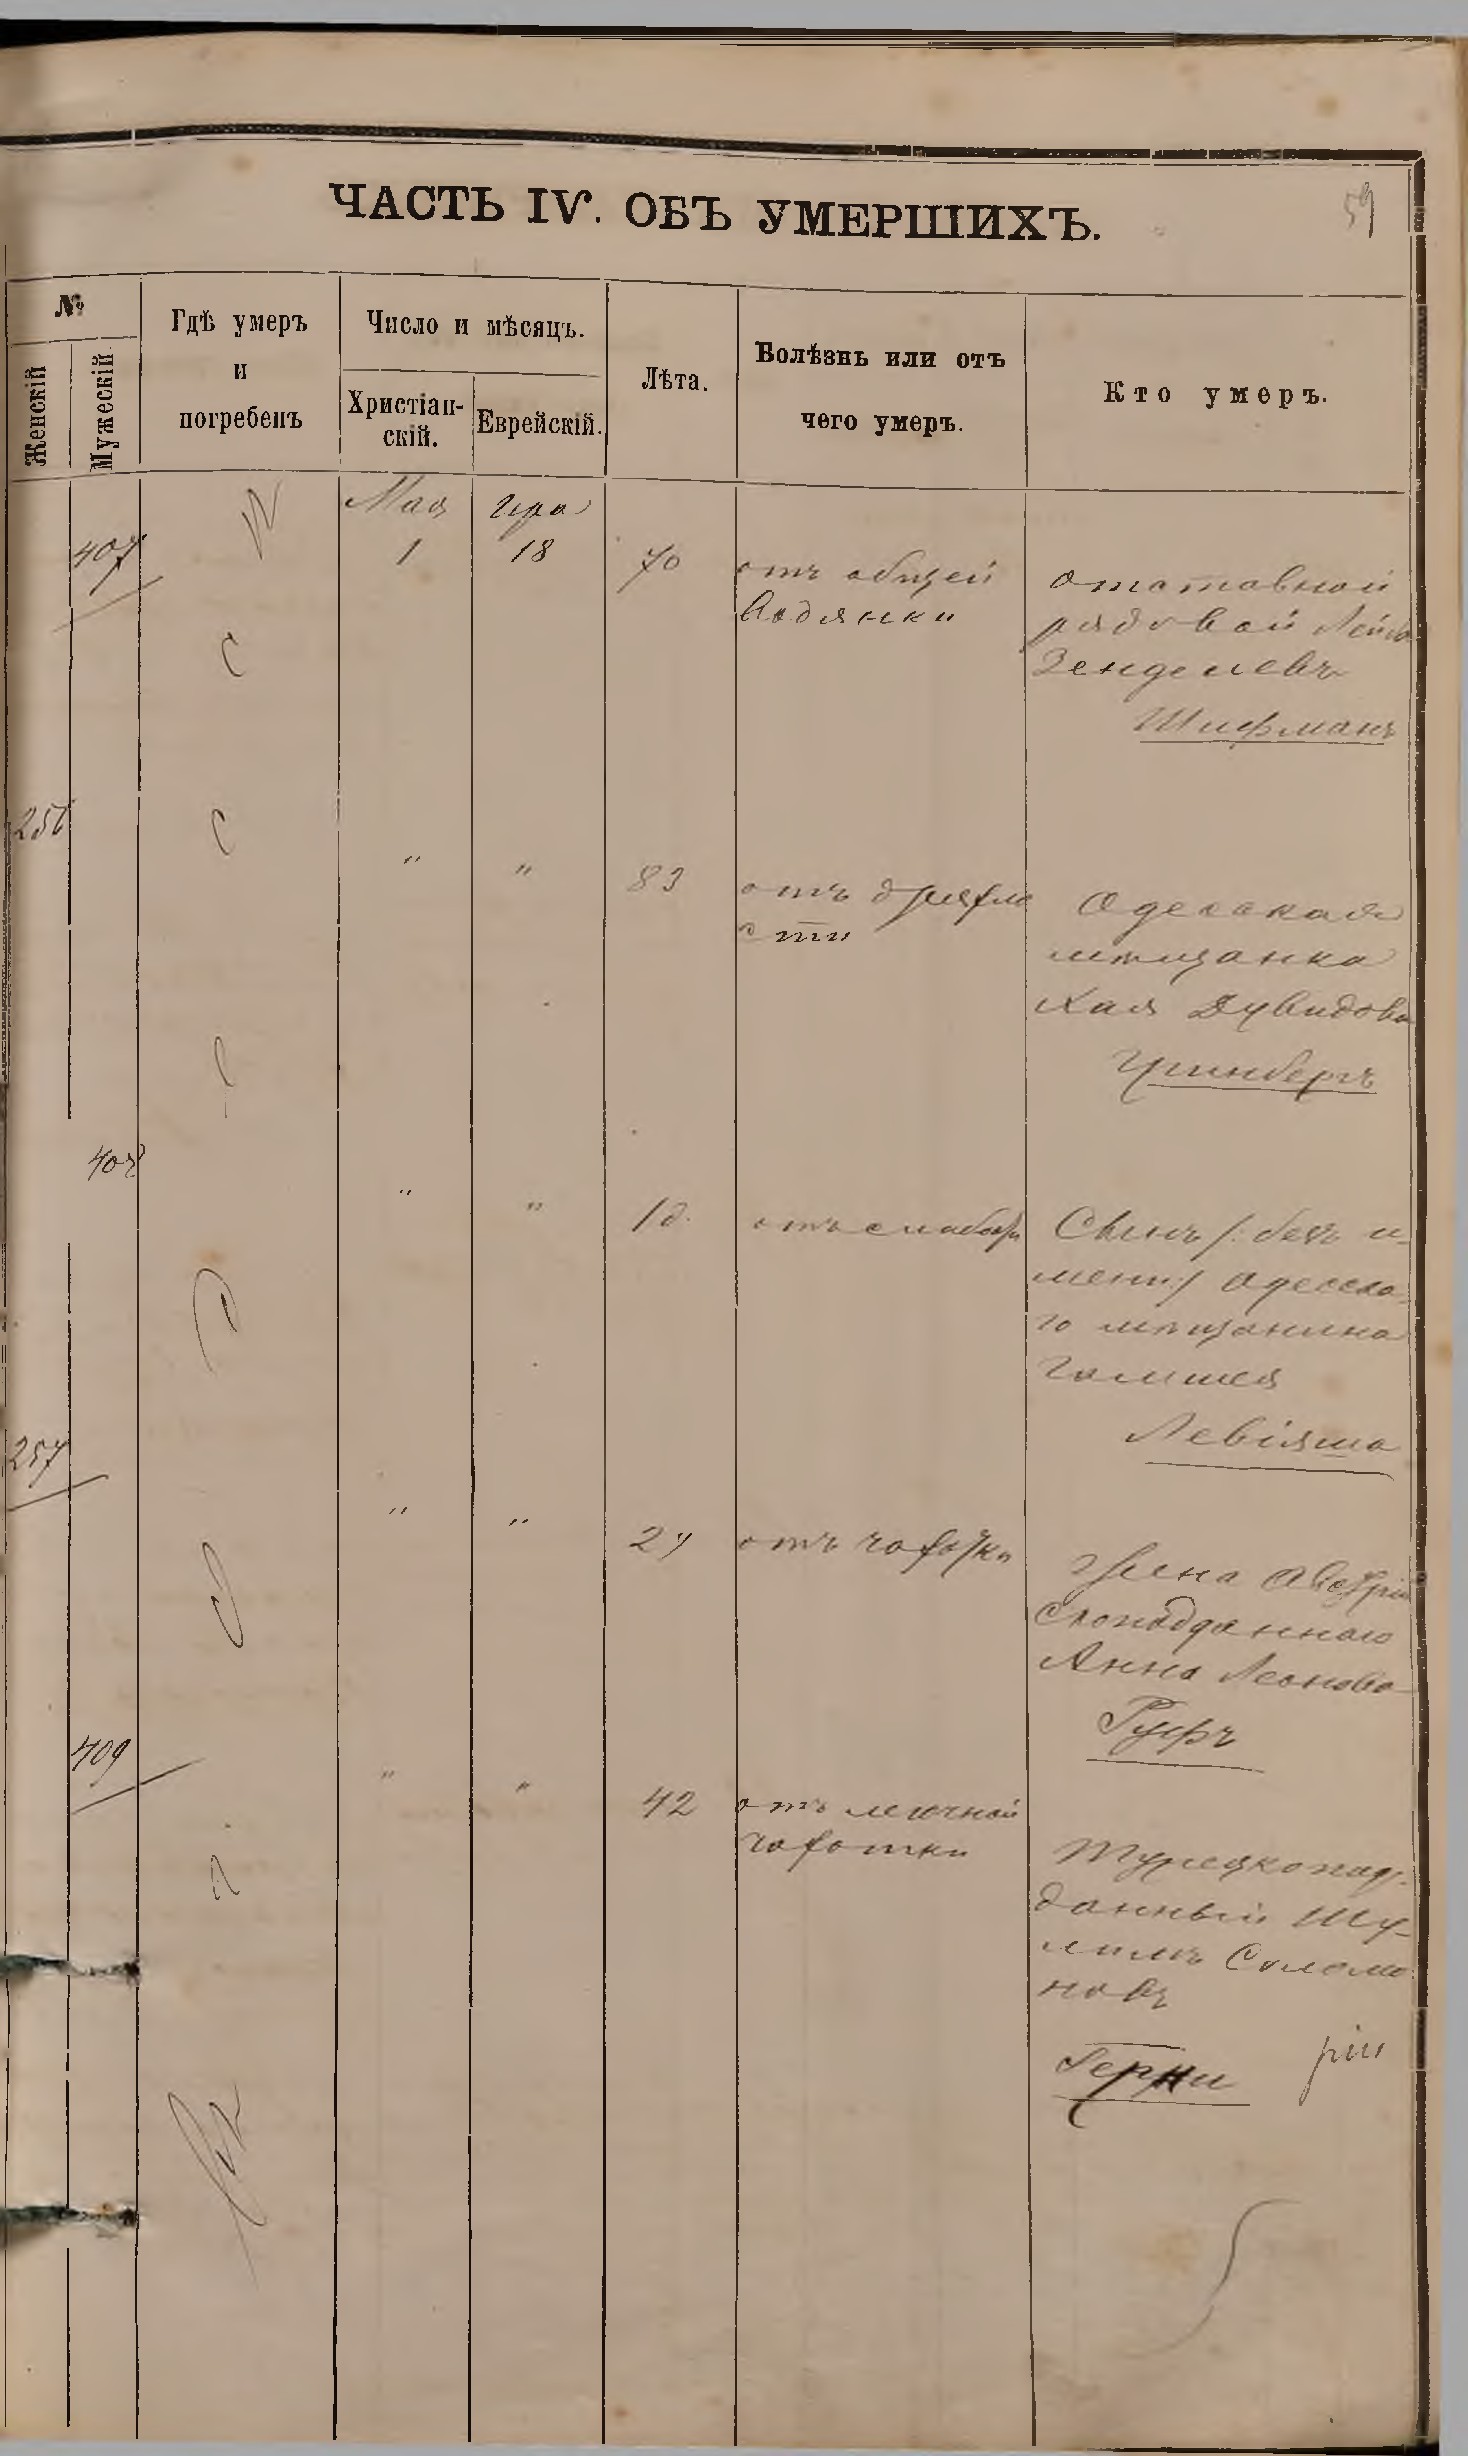 59
ЧАСТЬ IV. ОБЪ УМЕРШИХЪ.
№
Женскій
Мужескій
Гдѣ умеръ
и
погребенъ
Число и мѣсяцъ.
Христіан-
скій.
Еврейскій.
Лѣта.
Болѣзнь или отъ
чего умеръ.
Кто умеръ.
Мая
Іура
407
1
18
70
отъ общей
водянки
отставной
рядовой Лейба
Зенделевъ
Шифманъ
256
"
"
83
отъ дряхло
сти
Одесская
мѣщанка
Хая Дувидова
Гринбергъ
408
"
"
1 д.
отъ слабости
Сынъ /: безъ и-
мени :/ Одесска-
го мѣщанина
Левіяша
257
"
"
27
отъ чахотки
Жена Австрій
скоподданнаго
Анна Леонова
Руфъ
409
"
"
42
отъ легочной
чахотки
Турецкопод-
данный Шу-
лимъ Соломо
новъ